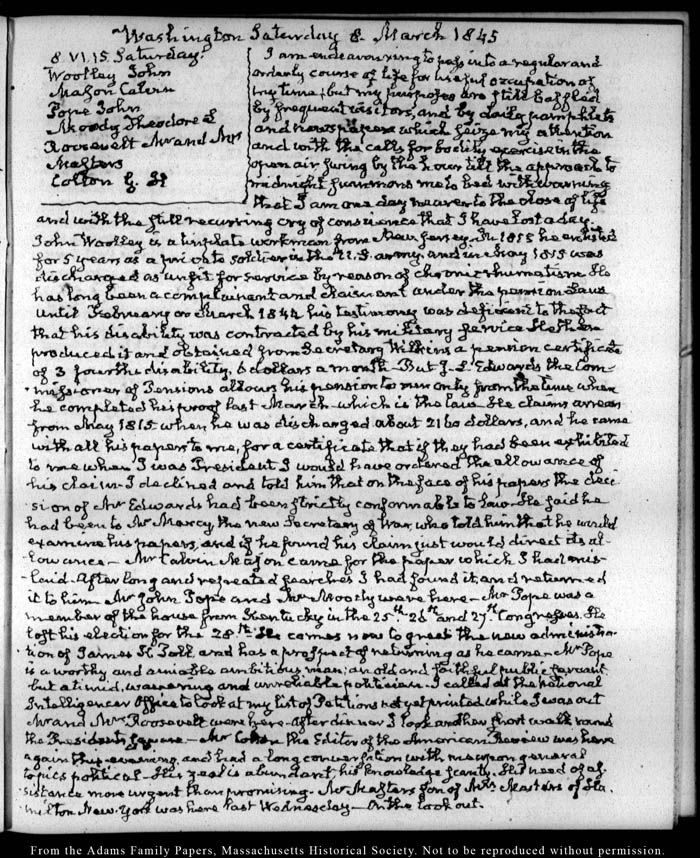 Washington Saturday 8. March 1845
8. VI. 15. Saturday.
Woolley John
Mason Calvin
Pope John
Moody Theodore L
Roosevelt Mr and Mrs
Masters
Colton G. H
I am endeavouring to pass into a regular and
orderly course of life for useful occupation of
my time; but my purposes are still baffled
by frequent visitors, and by daily pamphlets
and newspapers which seize my attention
and with the calls for bodily exercise in the
open air swing by the hour till the approach to
midnight summons me to bed with warning
that I am one day nearer to the close of life
and with the still recurring cry of conscience that I have lost a day.
John Woolley is a tinplate workman from New Jersey. In he enlisted
for 5 years as a private soldier in the U.S. army, and in May 1815 was
discharged as unfit for service by reason of chronic rhumatism He
has long been a complainant and claimant under the pension Laws
until February or March 1844 his testimony was deficient to the fact
that his disability was contracted by his military service He then
produced it and obtained from Secretary Wilkins a pension certificate
of 3 fourths disability, 6 dollars a month But J. L. Edwards the Com-
missioner of Pensions allows his pension to run only from the time when
he completed his proof last March which is the law. He claims arrears
from May 1815 when he was discharged about 2160 dollars, and he came
with all his papers to me, for a certificate that if they had been exhibited
to me when I was President I would have ordered the allowance of
his claim. I declined and told him that on the face of his papers the deci-
sion of Mr Edwards had been strictly conformable to Law. He said he
had been to Mr Marcy, the new Secretary of War, who told him that he would
examine his papers, and if he found his claim just would direct its al-
lowance. Mr Calvin Mason came for the paper which I had mis-
laid. After long and repeated searches I had found it, and returned
it to him. Mr John Pope and Mr Moody were here. Mr Pope was a
member of the house from Kentucky in the 25th 26th and 27th Congresses. He
lost his election for the 28th. He comes now to greet the new administra-
tion of James K. Polk and has a prospect of returning as he came. Mr Pope
is a worthy and amiable ambitious man; an old and faithful public servant
but a timid, wavering and unreliable politician. I called at the National
Intelligencer Office to look at my list of Petitions not yet printed while I was out
Mr and Mrs Roosevelt were here. After dinner I took another short walk round
the President's square. Mr Colton the Editor of the American Review was here
again this evening, and had a long conversation with me upon general
topics political. His zeal is abundant his knowledge scanty. His need of as-
sistance more urgent than promising. Mr Masters son of Mrs Masters of Ha-
milton New-York was here last Wednesday. On the look out.
From the Adams Family Papers, Massachusetts Historical Society. Not to be reproduced without permission.